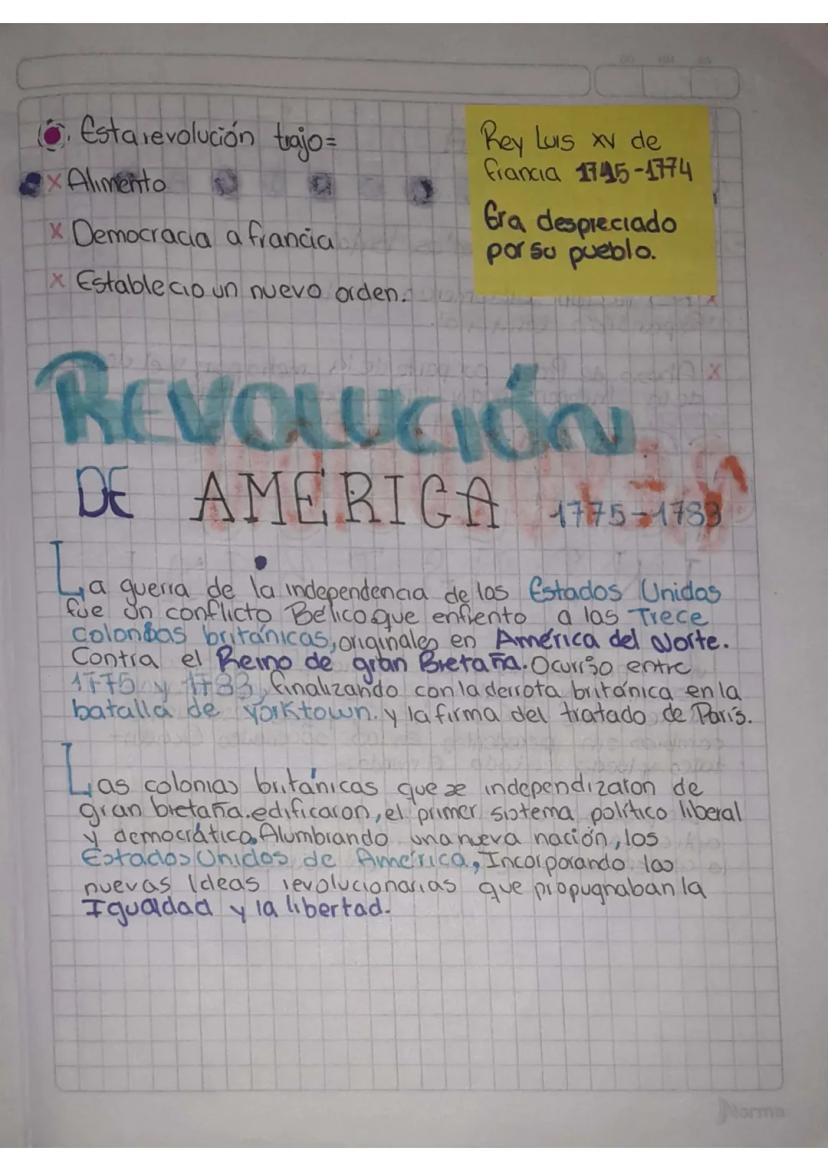 Esta revolución trajo=
x Alimento
x Democracia a francia
x Establecio un nuevo orden.
Rey Luis xv de
francia 1715-1774
Era despreciado
por su pueblo.
REVOLUCIÓN
DE AMERICA 1775-1783
La guerra de la independencia de los Estados Unidos
fue un conflicto Belico que enfrento a las Trece
colonias británicas, originales en América del Norte.
Contra el Reino de gran Bretaña. Ocurrio entre
1775 y 1783, finalizando con la derrota británica en la
batalla de Yorktown. y la firma del tratado de Paris.
Las colonias británicas que se independizaron de
gran bretaña. edificaron, el primer sistema político liberal
y democrática, Alumbrando una nueva nación, los
Estados Unidos de América, Incorporando las
nuevas Ideas revolucionarias que propugnaban la
Igualdad y la libertad.
Norma